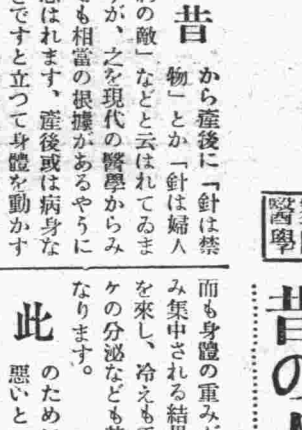 醫學
昔の
昔から產後に「針は禁
物」とか「針は婦人
の敵」などと云はれてゐま
が、之を現代の醫學からみ
も相當の根據があるやうに
はれます、產後或は病身な
ですと立つて身體を動かす
而も身體の重み
み集中される結果
を來し、冷えも
ケの分泌なども
なります。
此のため
惡いと